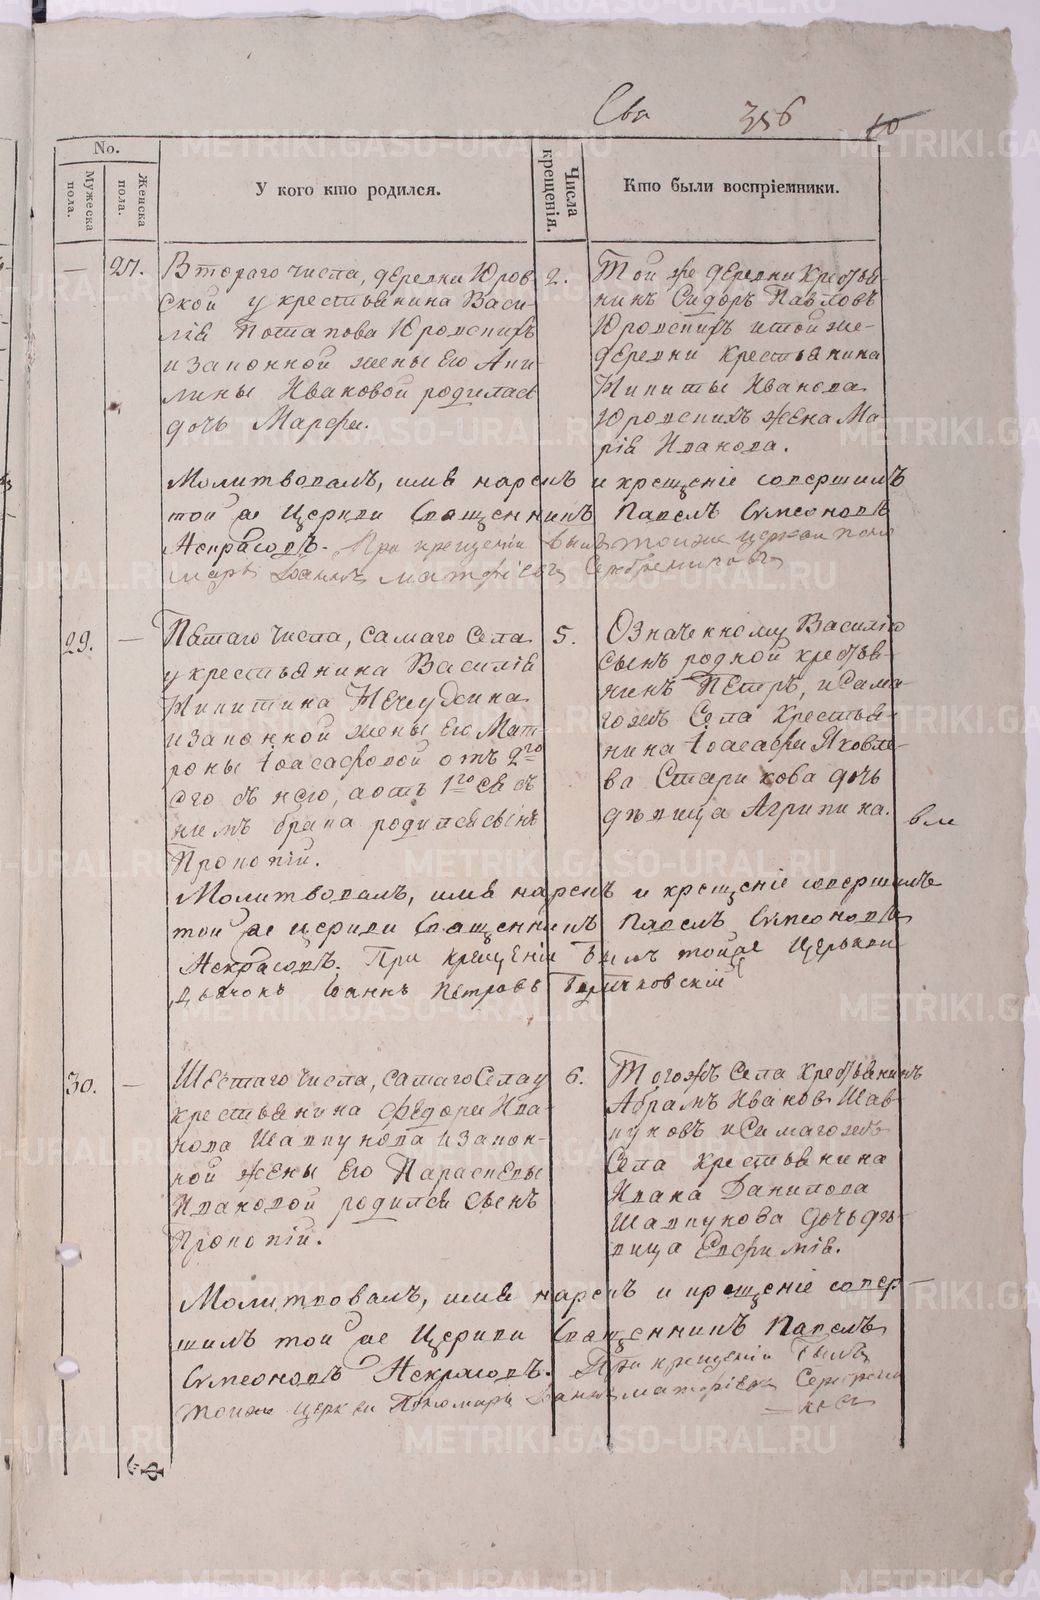 Сва 356 10
No.
Мужеска пола.
Женска пола.
У кого кто родился.
Числа крещенія.
Кто были воспріемники.
— 27.
Втораго числа, деревни Юров-
ской у крестьянина Васи-
лія Потапова Юровскихъ
и законной жены его Аки-
лины Ивановой родилась
дочь Марфа.
2.
Той же деревни крестья-
нинъ Сидоръ Павловъ
Юровскихъ и той же
деревни крестьянина
Никиты Иванова
Юровскихъ жена Ма-
рія Иванова.
Молитвовалъ, имя нарекъ и крещеніе совершилъ
той же Церкви Священникъ Павелъ Симеоновъ
Некрасовъ. При крещеніи былъ тойже церкви поно
марь Іоаннъ Матфіевъ
29. —
Пятаго числа, самаго села
у крестьянина Василія
Никитина
и законной жены его Мат-
роны Іоасафовой отъ 2го
его съ нею, а отъ 1го ея съ
нимъ брака родился сынъ
Прокопій.
5.
Означенному Василію
сынъ родной крестья-
нинъ Петръ, и сама-
гожъ Села крестья-
нина Іоасафа Яковле-
ва Старикова дочь
дѣвица Агрипина.
Молитвовалъ, имя нарекъ и крещеніе совершилъ
той же церкви Священникъ Павелъ Симеоновъ
Некрасовъ. При крещеніи былъ тойже Церькви
Дьячокъ Іоаннъ Петровъ
30. —
Шестаго числа, самаго Села у
крестьянина Федора Ива-
нова Шавкунова и закон-
ной жены его Параскевы
Ивановой родился сынъ
Прокопій.
6.
Тогожъ Села крестьянинъ
Абрамъ Ивановъ Шав-
куновъ и Самагожъ
Села крестьянина
Ивана Данилова
Шавкунова дочь дѣ-
вица Евфимія.
Молитвовалъ, имя нарекъ и крещеніе совер-
шилъ той же Церкви Священникъ Павелъ
Симеоновъ Некрасовъ. При крещеніи былъ
тойже церкви Пономарь Іоаннъ Матфіевъ
METRIKI.GASO-URAL.RU